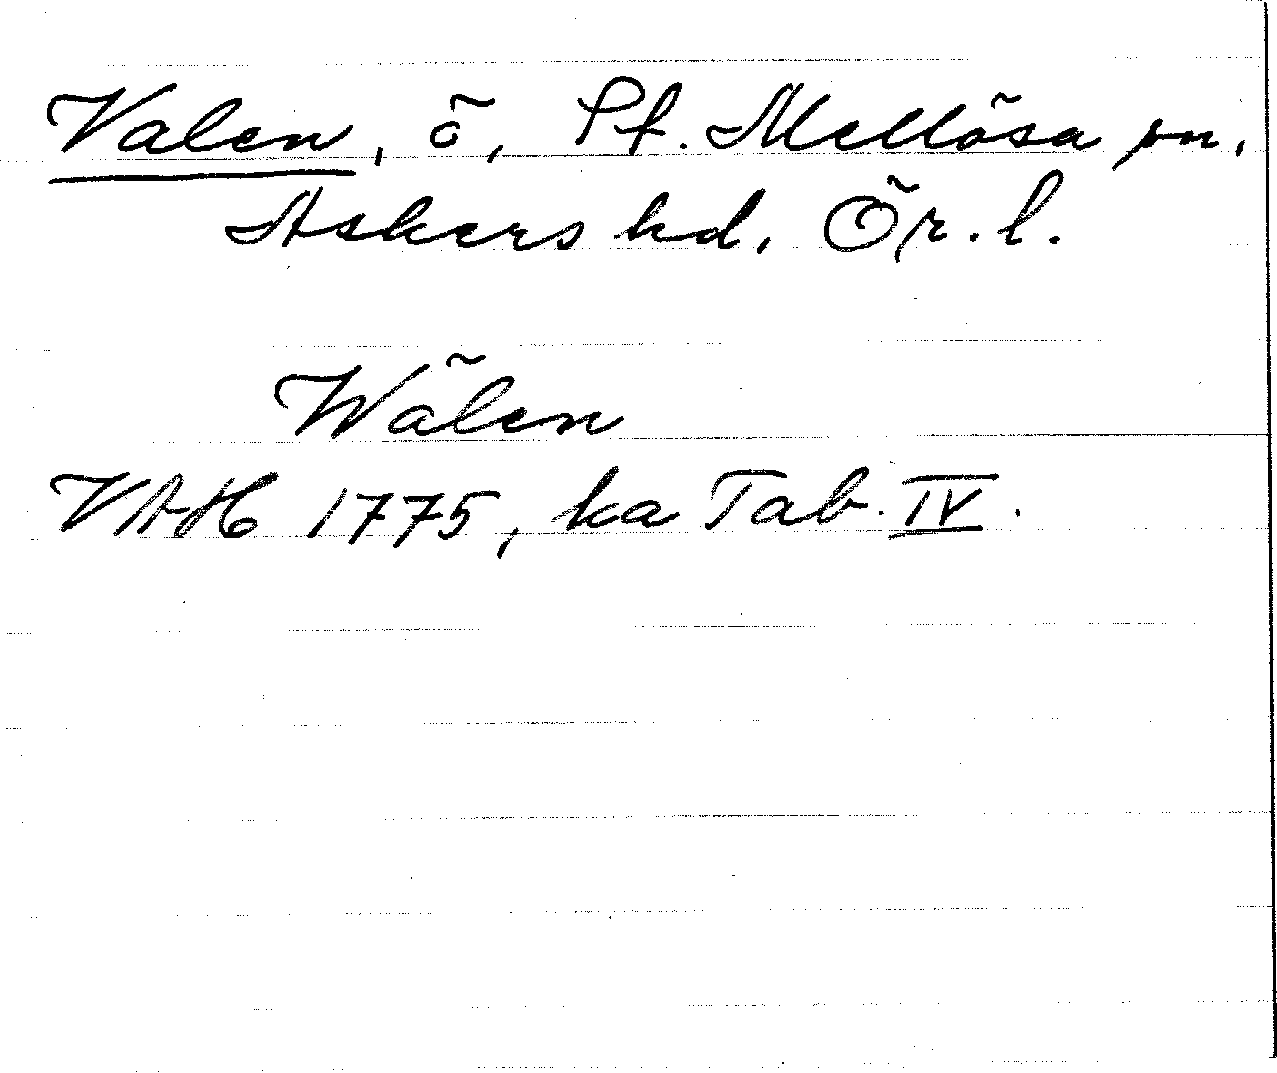 Valen, ö, St. Mellösa sn,
Askers hd, Ör. l.
Wälen
VAH 1775, ka Tab. IV.